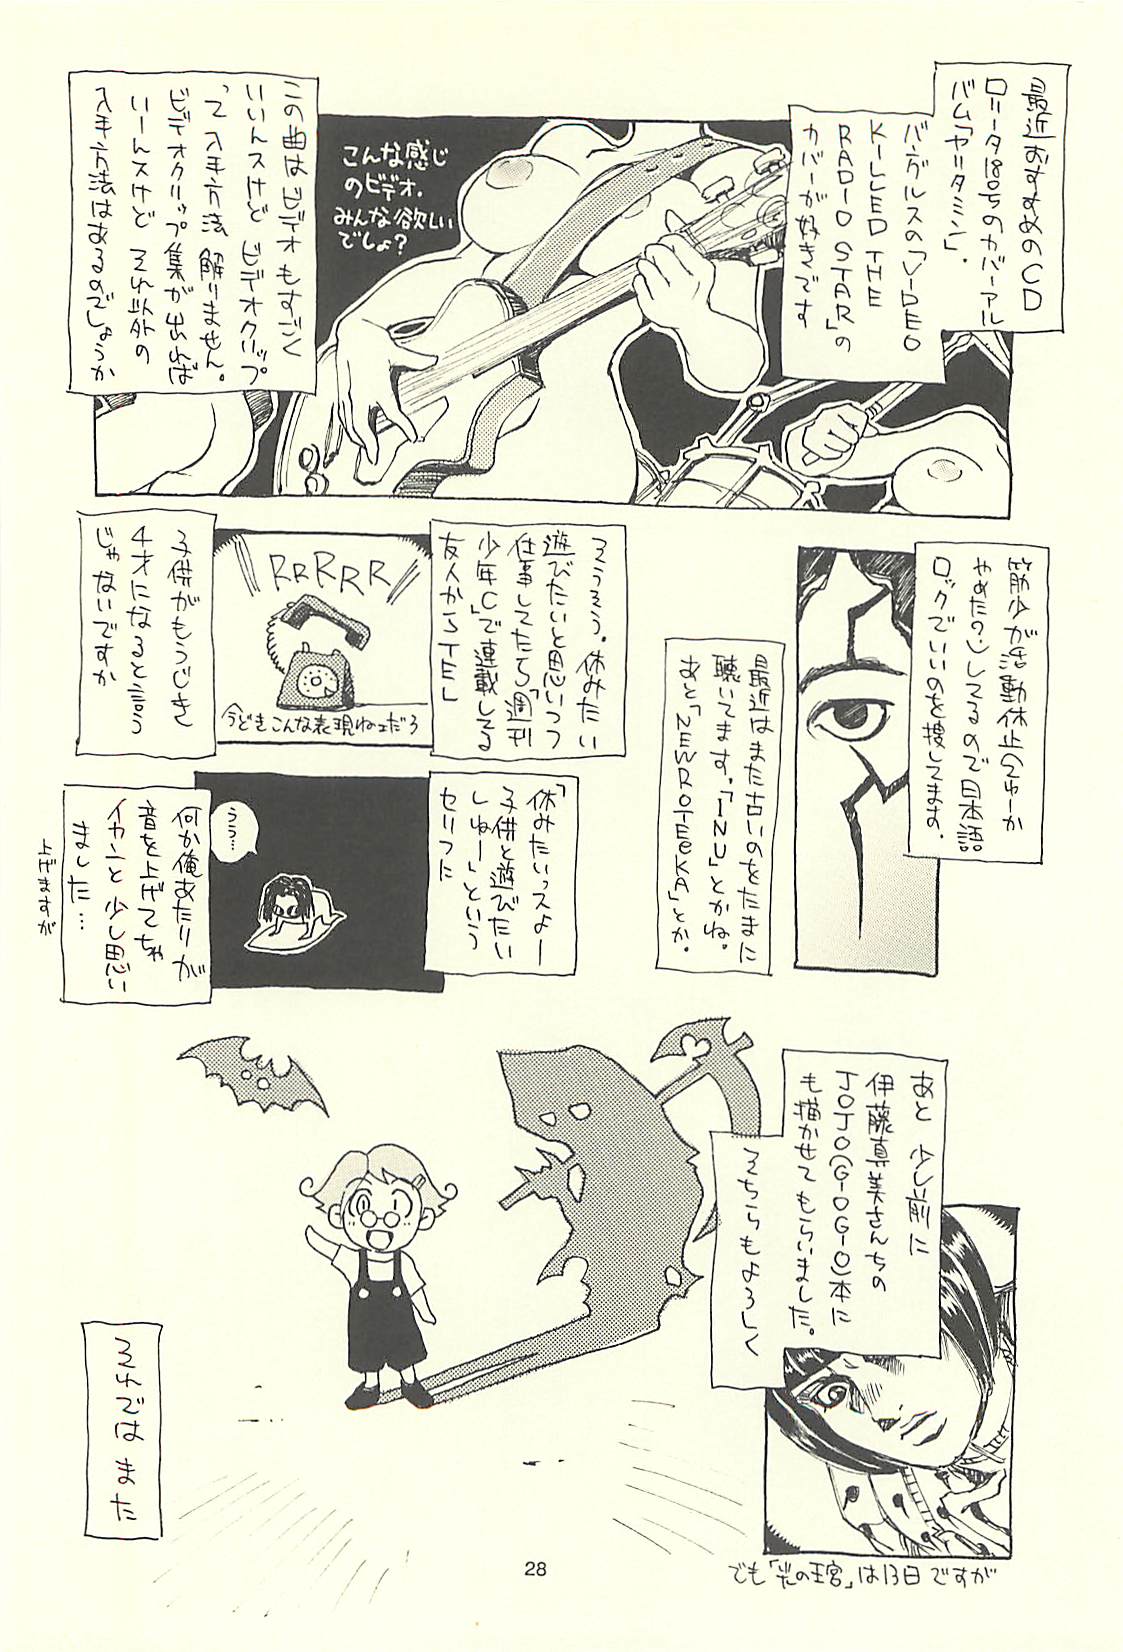 最近おすすめのCD
ロリータ18号のカバーアル
バム「ヤリタミン」。
バグルスの「VIDEO
KILLED THE
RADIO STAR」の
カバーが好きです
こんな感じ
のビデオ。
みんな欲しい
でしょ?
この曲はビデオもすごく
いいんスけど ビデオクリップ
って入手方法 解りません。
ビデオクリップ集が出れば
いーんスけど それ以外の
入手方法はあるのでしょうか
筋少が活動休止(つゅーか
やめたの?)してるので日本語
ロックでいいのを捜してます。
最近はまた古いのをたまに
聴いてます。「INU」とかね。
あと「NEWROTEeKA」とか。
そうそう。休みたい
遊びたいと思いつつ
仕事してたら「週刊
少年C」で連載してる
友人からTEL
RRRRR
今どきこんな表現ねェだろ
子供がもうじき
4才になると言う
じゃないですか
「休みたいっスよー
子供と遊びたい
しゅー」という
セリフに
うう…
何か俺あたりが
音を上げてちゃ
イカンと少し思い
ました…
上げますが
あと 少し前に
伊藤真美さんちの
JOJO(GIOGIO)本に
も描かせてもらいました。
そちらもよろしく
でも「光の王宮」は13日ですが
それではまた
28